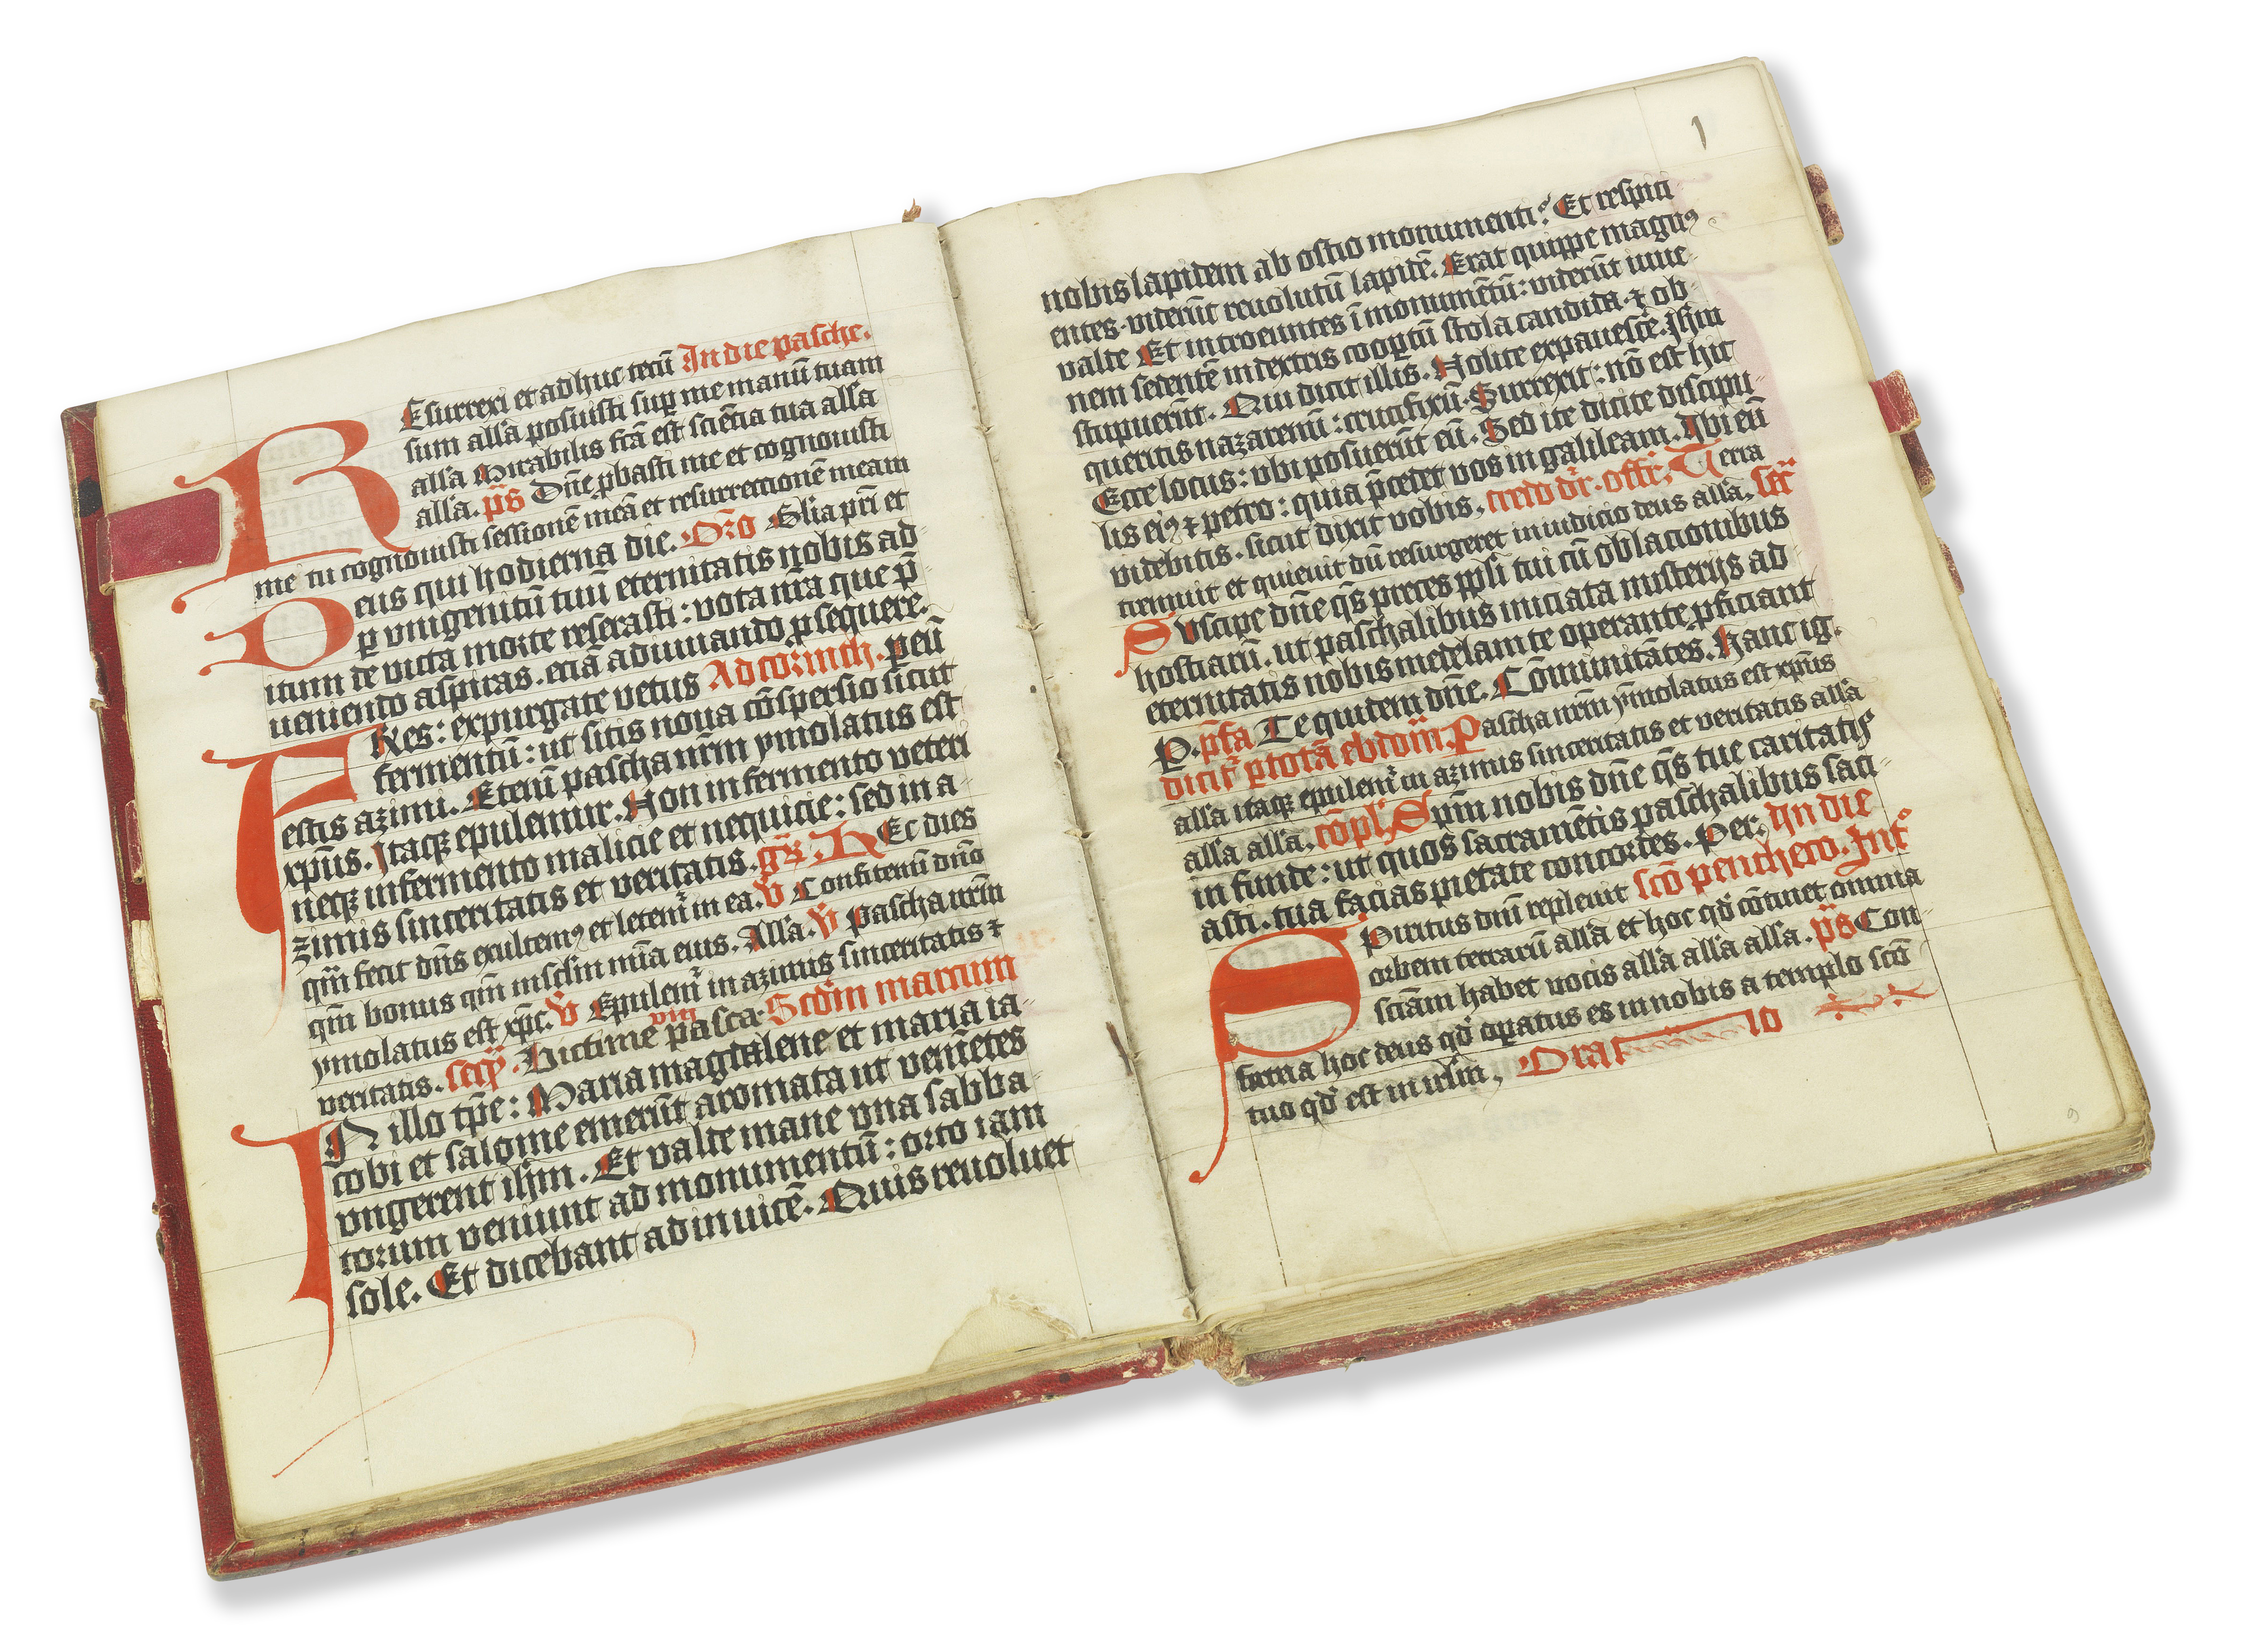 Esurrexi et adhuc tecū In die pasche.
sum all'a posuisti suꝑ me manū tuam
all'a Mirabilis fc̄a est sciētia tua all'a
all'a. p̄s Dn̄e ꝓbasti me et cognouisti
me tu cognouisti sessionē meā et resurrectionē meam
Deus qui hodierna die. Oro Glia pr̄i et
ꝑ vnigenitū tuū eternitatis nobis ad-
itum de victa morte reserasti : vota nr̄a que p̄-
ueniendo aspiras. eciā adiuuando ꝓsequere.
FRes : expurgate vetus Ad corinth. ꝑ eū
fermentū : ut sitis noua cōspersio sicut
estis azimi. Etenī pascha nr̄m ymolatus est
xp̄us. Itaqꝫ epulemur. Non in fermento veteri
neqꝫ in fermento malicie et nequicie : sed in a-
zimis sinceritatis et veritatis. gr̄. HEc dies
qm̄ fecit dn̄s exultemꝰ et letem̄r in ea. v̄ Confitemī dn̄o
qm̄ bonus qm̄ in sclm̄ mīa eius. All'a. v̄ Pascha nr̄m
ymolatus est xp̄c. v̄ Epulem̄r in azimis sinceritatis ⁊
veritatis. Victime pasca. Scdm̄ marcum
IN illo tp̄e : Maria magdalene et maria ia-
cobi et salome emerūt aromata ut veniētes
vngerent ih̄m. Et valde mane vna sabba-
torum veniunt ad monumentū : orto iam
sole. Et dicebant ad inuicē. Quis reuoluet
1
nobis lapidem ab ostio monumenti? Et respici
entes. viderūt reuolutū lapidē. Erat quippe magnꝰ
valde Et introeuntes ī monumētū : viderūt iuue-
nem sedentē in dextris cooꝑtū stola candida. ⁊ ob-
stupuerūt. Qui dicit illis. Nolite expauescē. Ih̄m
queritis nazarenū : crucifixū. Surrexit : nō est hic
Ecce locus : vbi posuerūt eū. Sed ite dicite discipu-
lis eiꝰ ⁊ petro : quia p̄cedet vos in galileam. Ibi eū
videbitis. sicut dixit vobis. credo dr̄. offr̄. Terra
tremuit et quieuit dū resurgeret in iudicio deus all'a. scr̄
Suscipe dn̄e qs̄ preces ppl'i tui cū oblacionibus
hostiarū. ut paschalibus iniciata misterijs ad
eternitatis nobis medelam te operante ꝓficiant
P. pfa Te quidem dn̄e. Cōmunicātes. Hanc ig.
dicit̄r ꝑ totā ebdom̄. Pascha nr̄m ymolatus est xp̄us
all'a itaqꝫ epulem̄r in azimis sinceritatis et veritatis all'a
all'a all'a. cōpl' Spm̄ nobis dn̄e qs̄ tue caritatis
in funde : ut quos sacramētis paschalibus saci-
asti. tua facias pietate concordes. Per. In die
scō penthecō. Int°
SPiritus dm̄ repleuit
orbem terrarū all'a et hoc qd̄ cōtinet omnia
sciām habet vocis all'a all'a all'a. p̄s Con-
firma hoc deus qd̄ oꝑatus es in nobis a templo scō
tuo qd̄ est in irl'm. Oratio